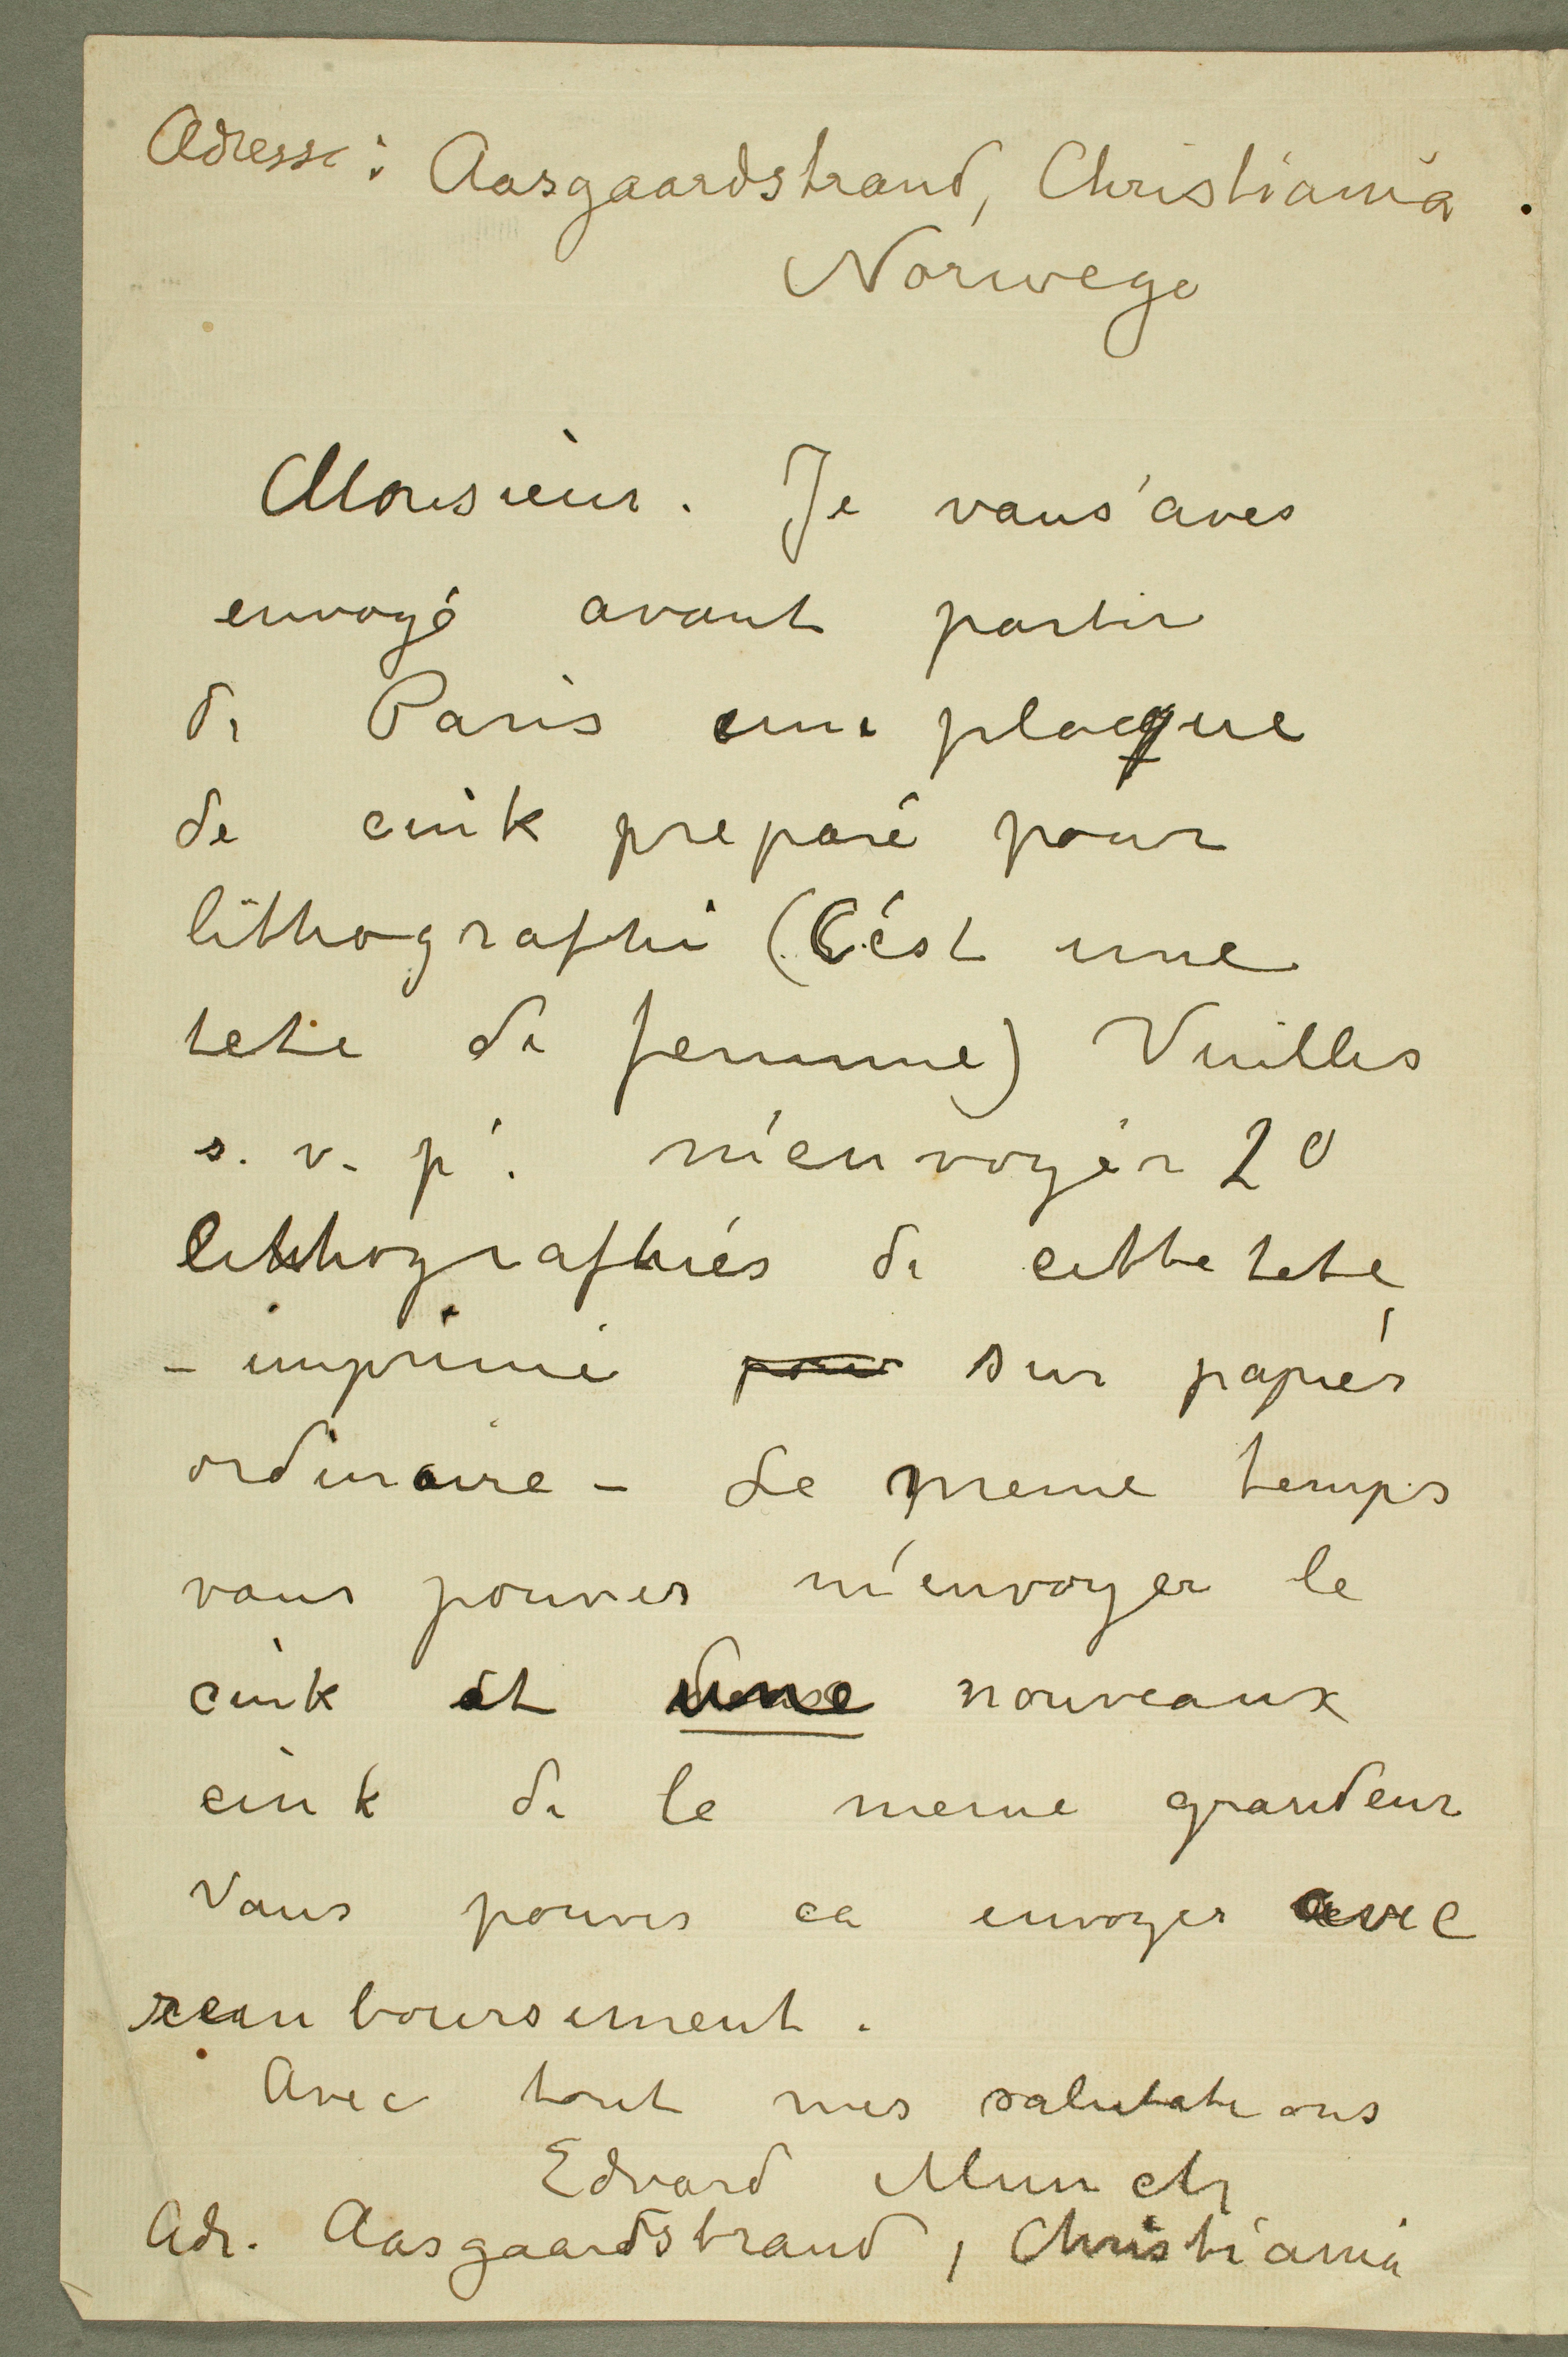 Adresse: Aasgaardstrand, Christiania.
Norwege
Monsieur. Je vous aves
envoyé avant partir
de Paris une plaque
de cink preparé pour
lithografhi (C'ést une
tete de femme) Vuilles
s. v. p. m'envoyér 20
lithografhiés de cette tete
- imprimé pour sur papiér
ordinaire - Le meme temps
vous pouves m'envoyer le
cink et une nouveaux
cink de le meme grandeur
Vous pouves ca envoyer avec
reamboursement.
Avec tout mes salutations
Edvard Munch
Adr. Aasgaardstrand, Christiania